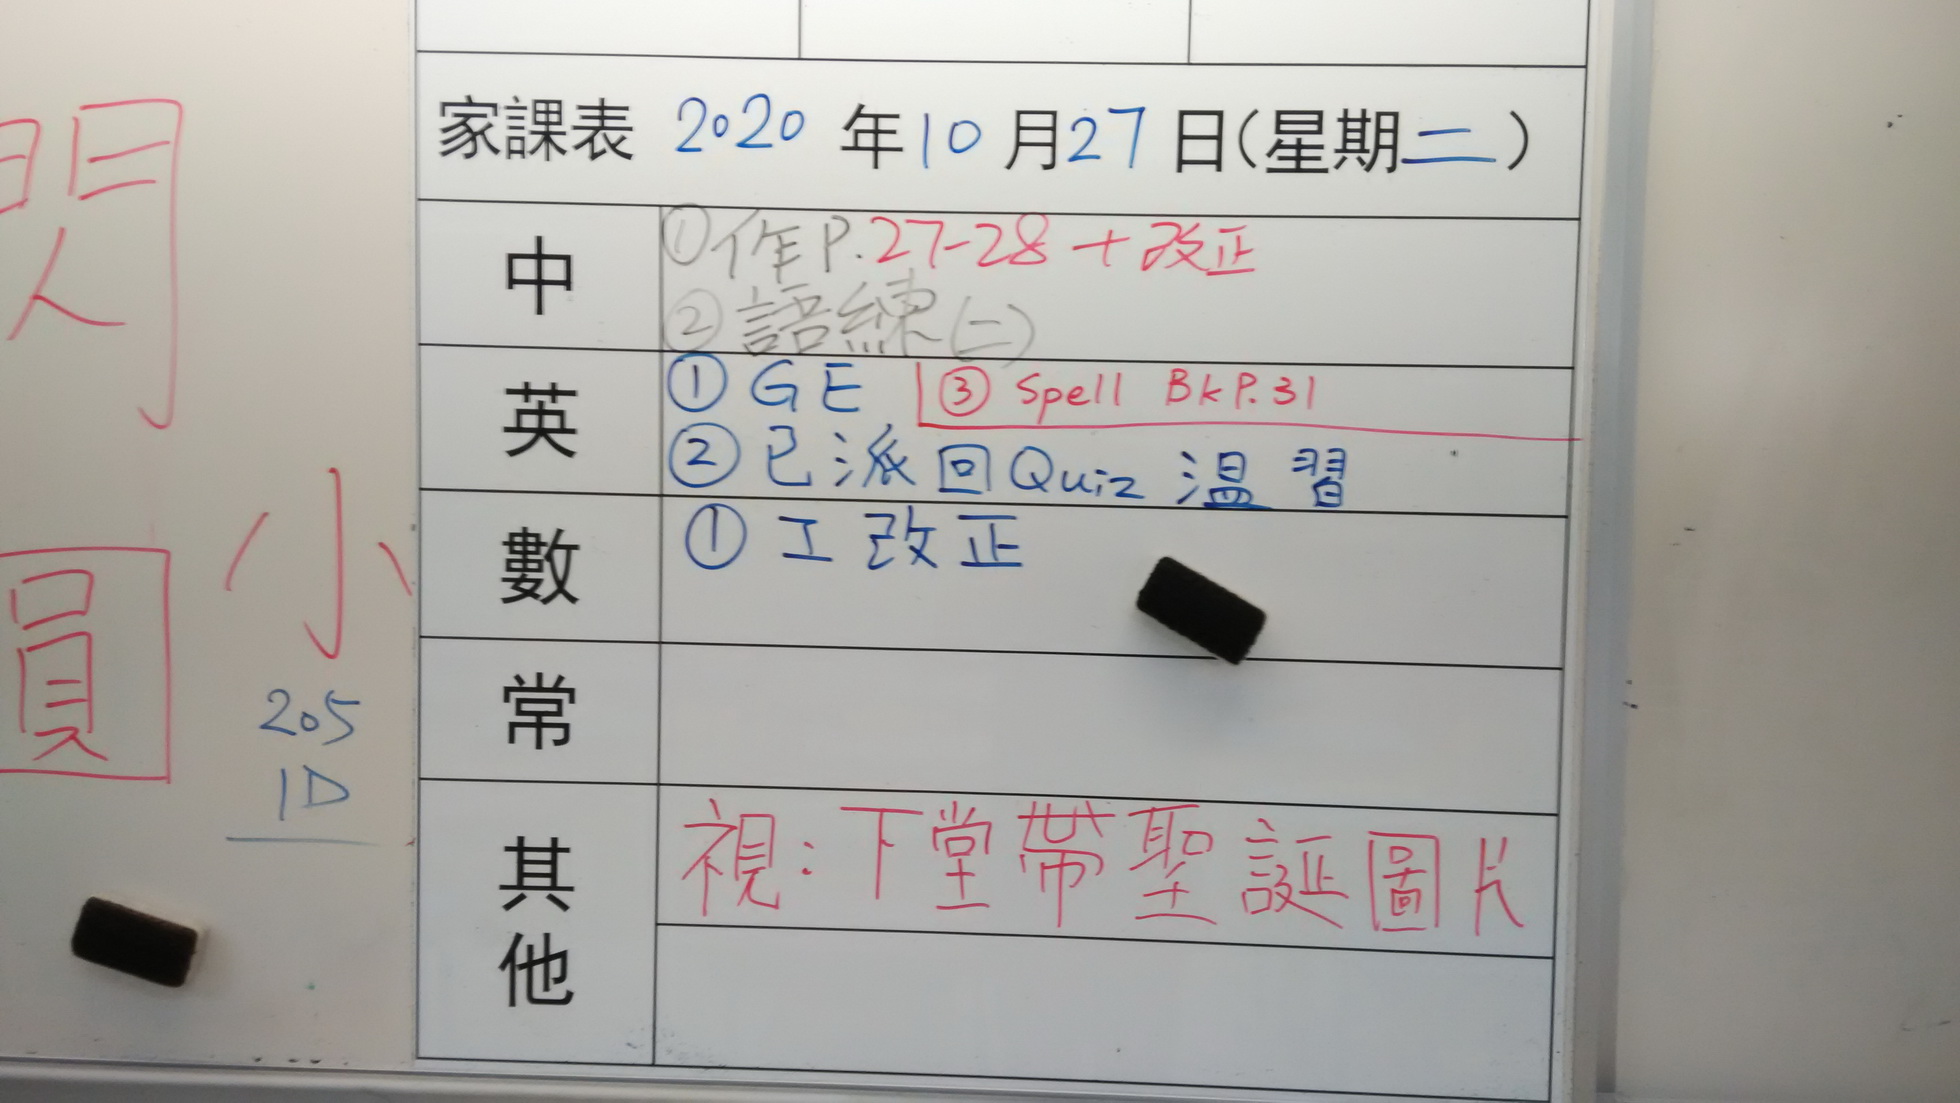 閃
員
小
205
1D
家課表 2020 年 10 月 27 日(星期二)
中
①作P.27-28 + 改正
②語練(二)
英
① GE ③ Spell Bk P.31
② 已派回Quiz 溫習
數
① 工改正
常
其他
視：下堂帶聖誕圖片